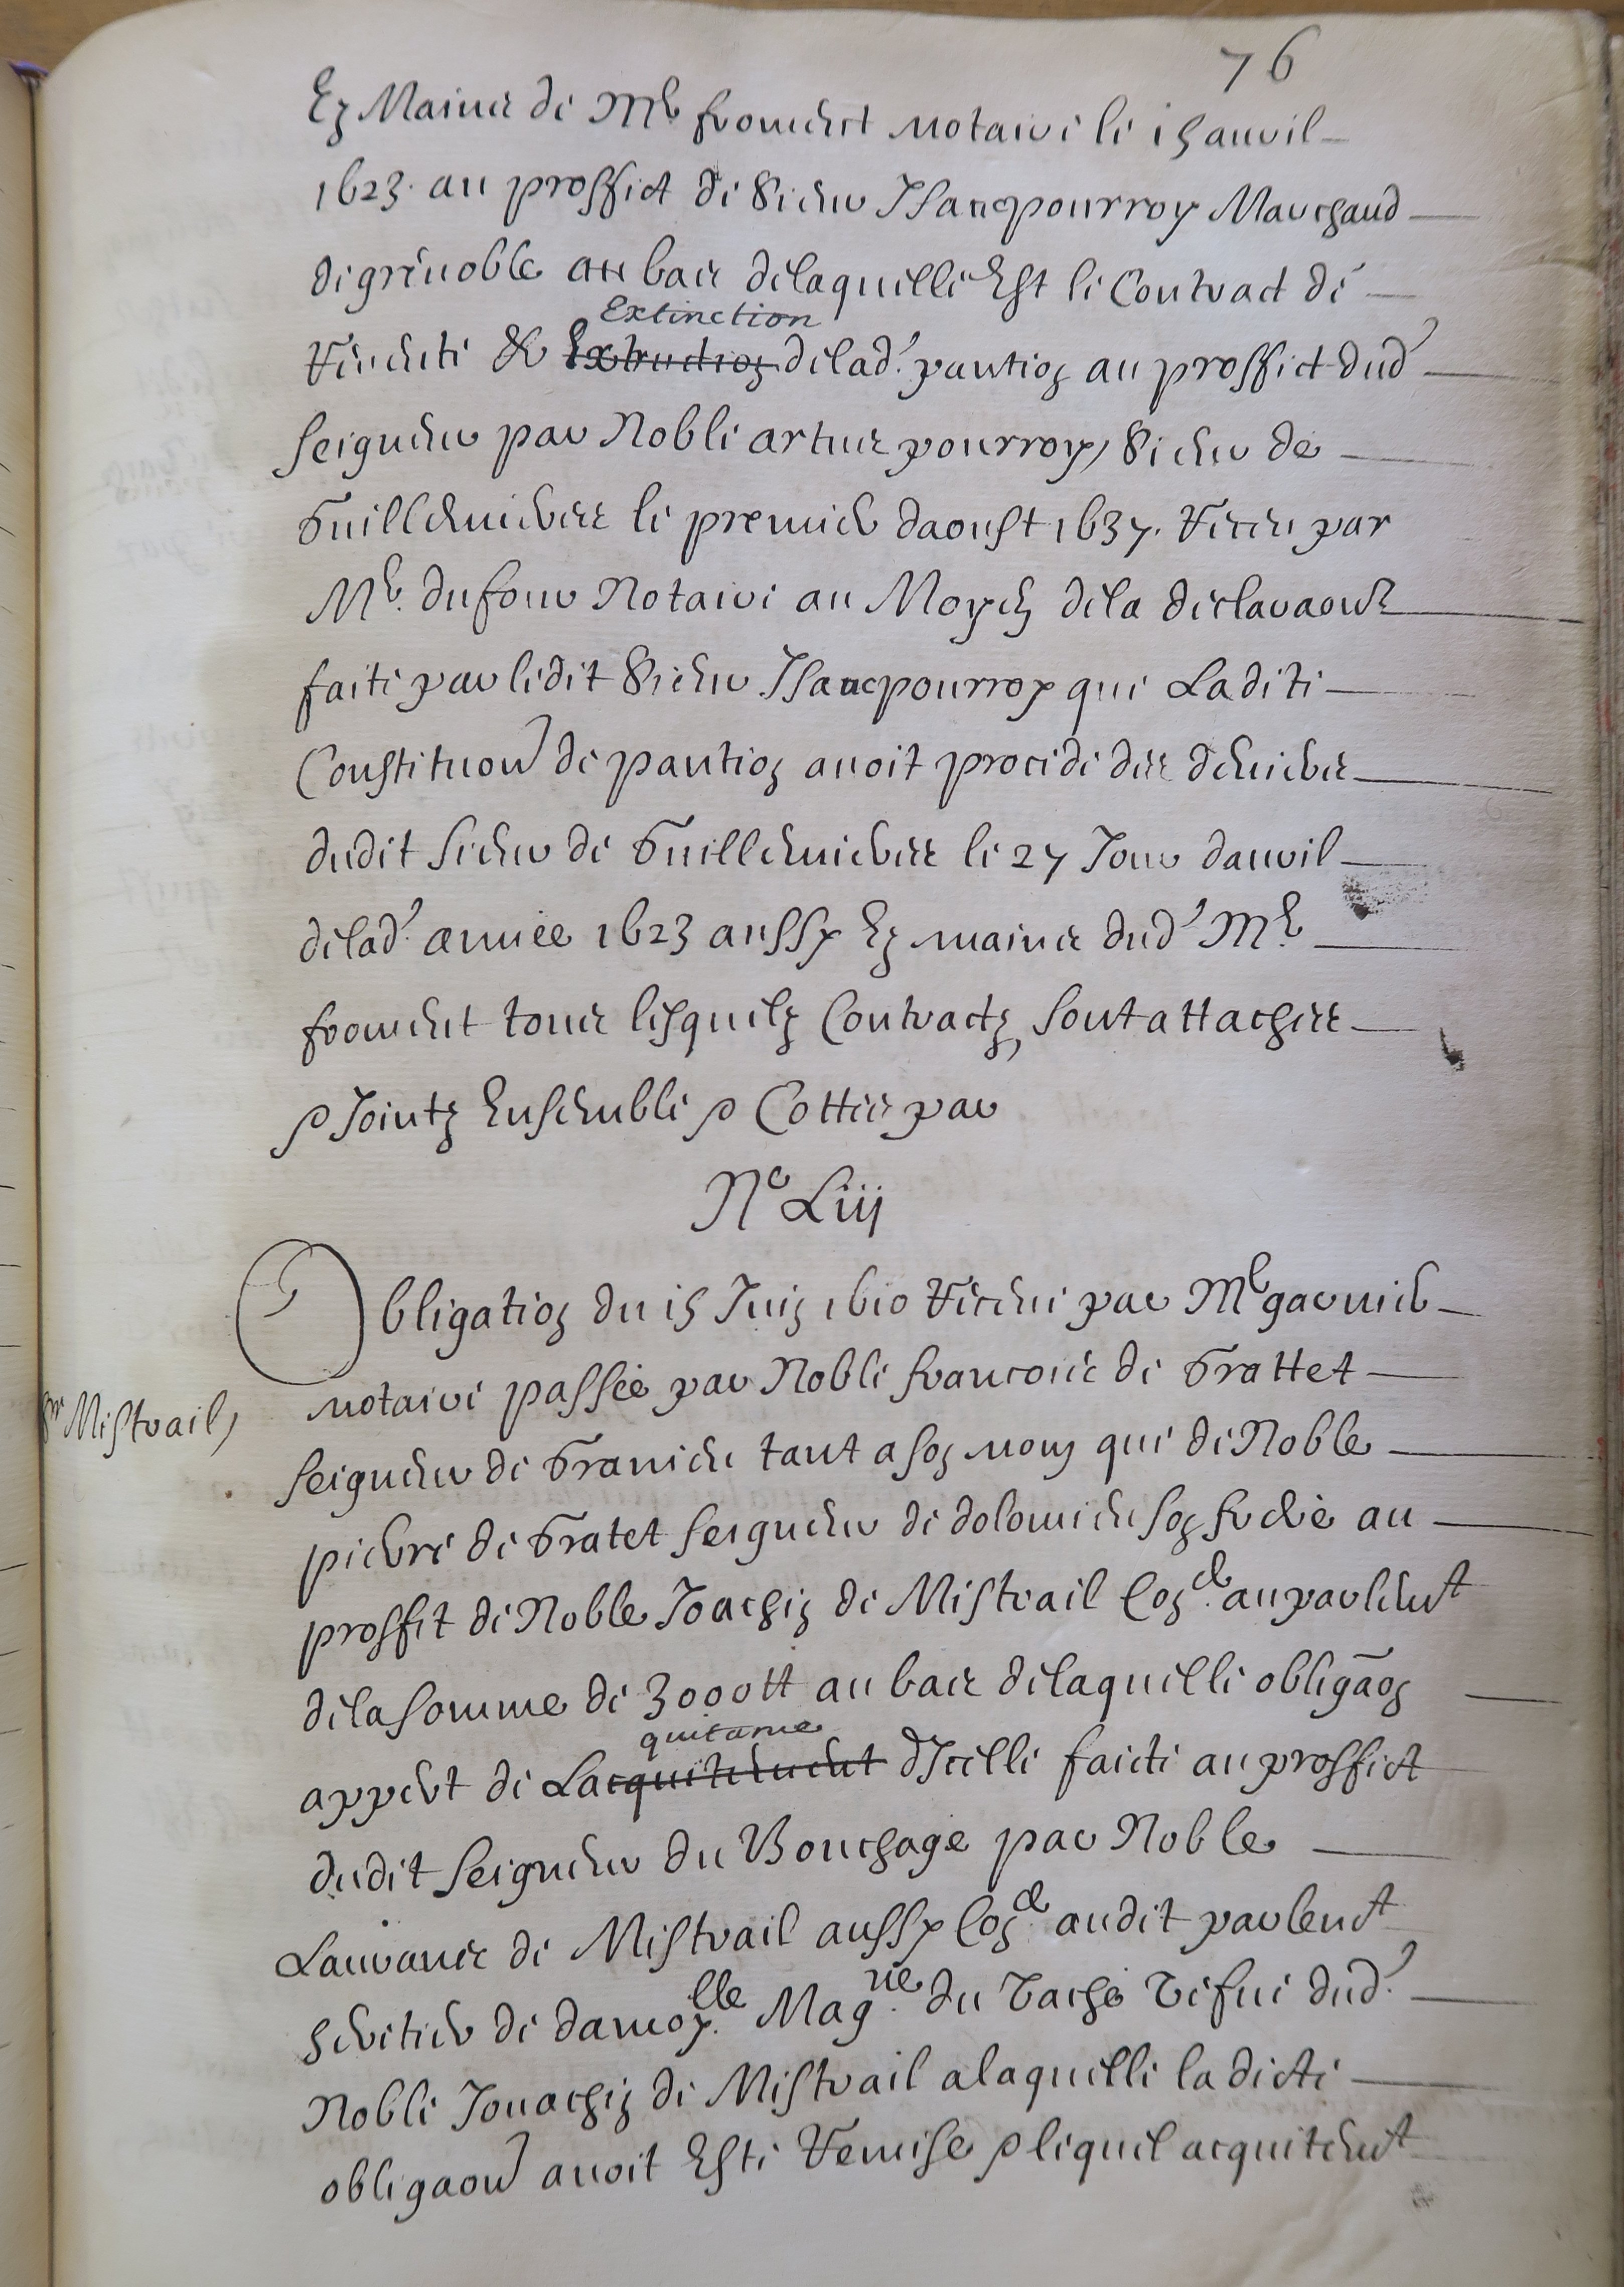 76
Ez Mains de Me froment notaire le 15 auril
1623. au proffict de Sieur Isaac pourroy Marchand
de grenoble au bas de laquelle Est le Contract de
Extinction
Vente & Extinction de lad. pention au proffict dud
seigneur par Noble artus pourroy, Sieur de
Guillemieres le premier daoust 1637. Receu par
Me. dufour Notaire au Moyen de la declaraon
faite par ledit Sieur Isaac pourroy que Ladite
Constituon de pention auoit procedé des deniers
dudit sieur de Guillemieres le 27 Jour dauril
de lad. année 1623 aussy Ez mains dud Me
froment tous lesquelz Contractz, sont attaches
& Jointz Ensemble & Cottés par
No Liij
Obligation du 15 Juin 1610 Receue par Me garnier
notaire passée par Noble francois de Grattet
Sr Mistrail,
seigneur de Granieu tant a son nom que de Noble
pierre de Gratet seigneur de dolomieu son frere au
proffit de Noble Joachin de Mistrail Coner. au parlemt
de la somme de 3000 tt au bas de laquelle obligaon
quitance
appert de Lacquitement dIcelle faicte au proffict
dudit seigneur du Bouchage par Noble
Laurans de Mistrail aussy Coner. audit parlemt
heritier de damoylle. Magne. du Vache Vefue dud.
Noble Jouachin de Mistrail a laquelle la dicte
obligaon auoit Esté Remise & lequel acquitemt